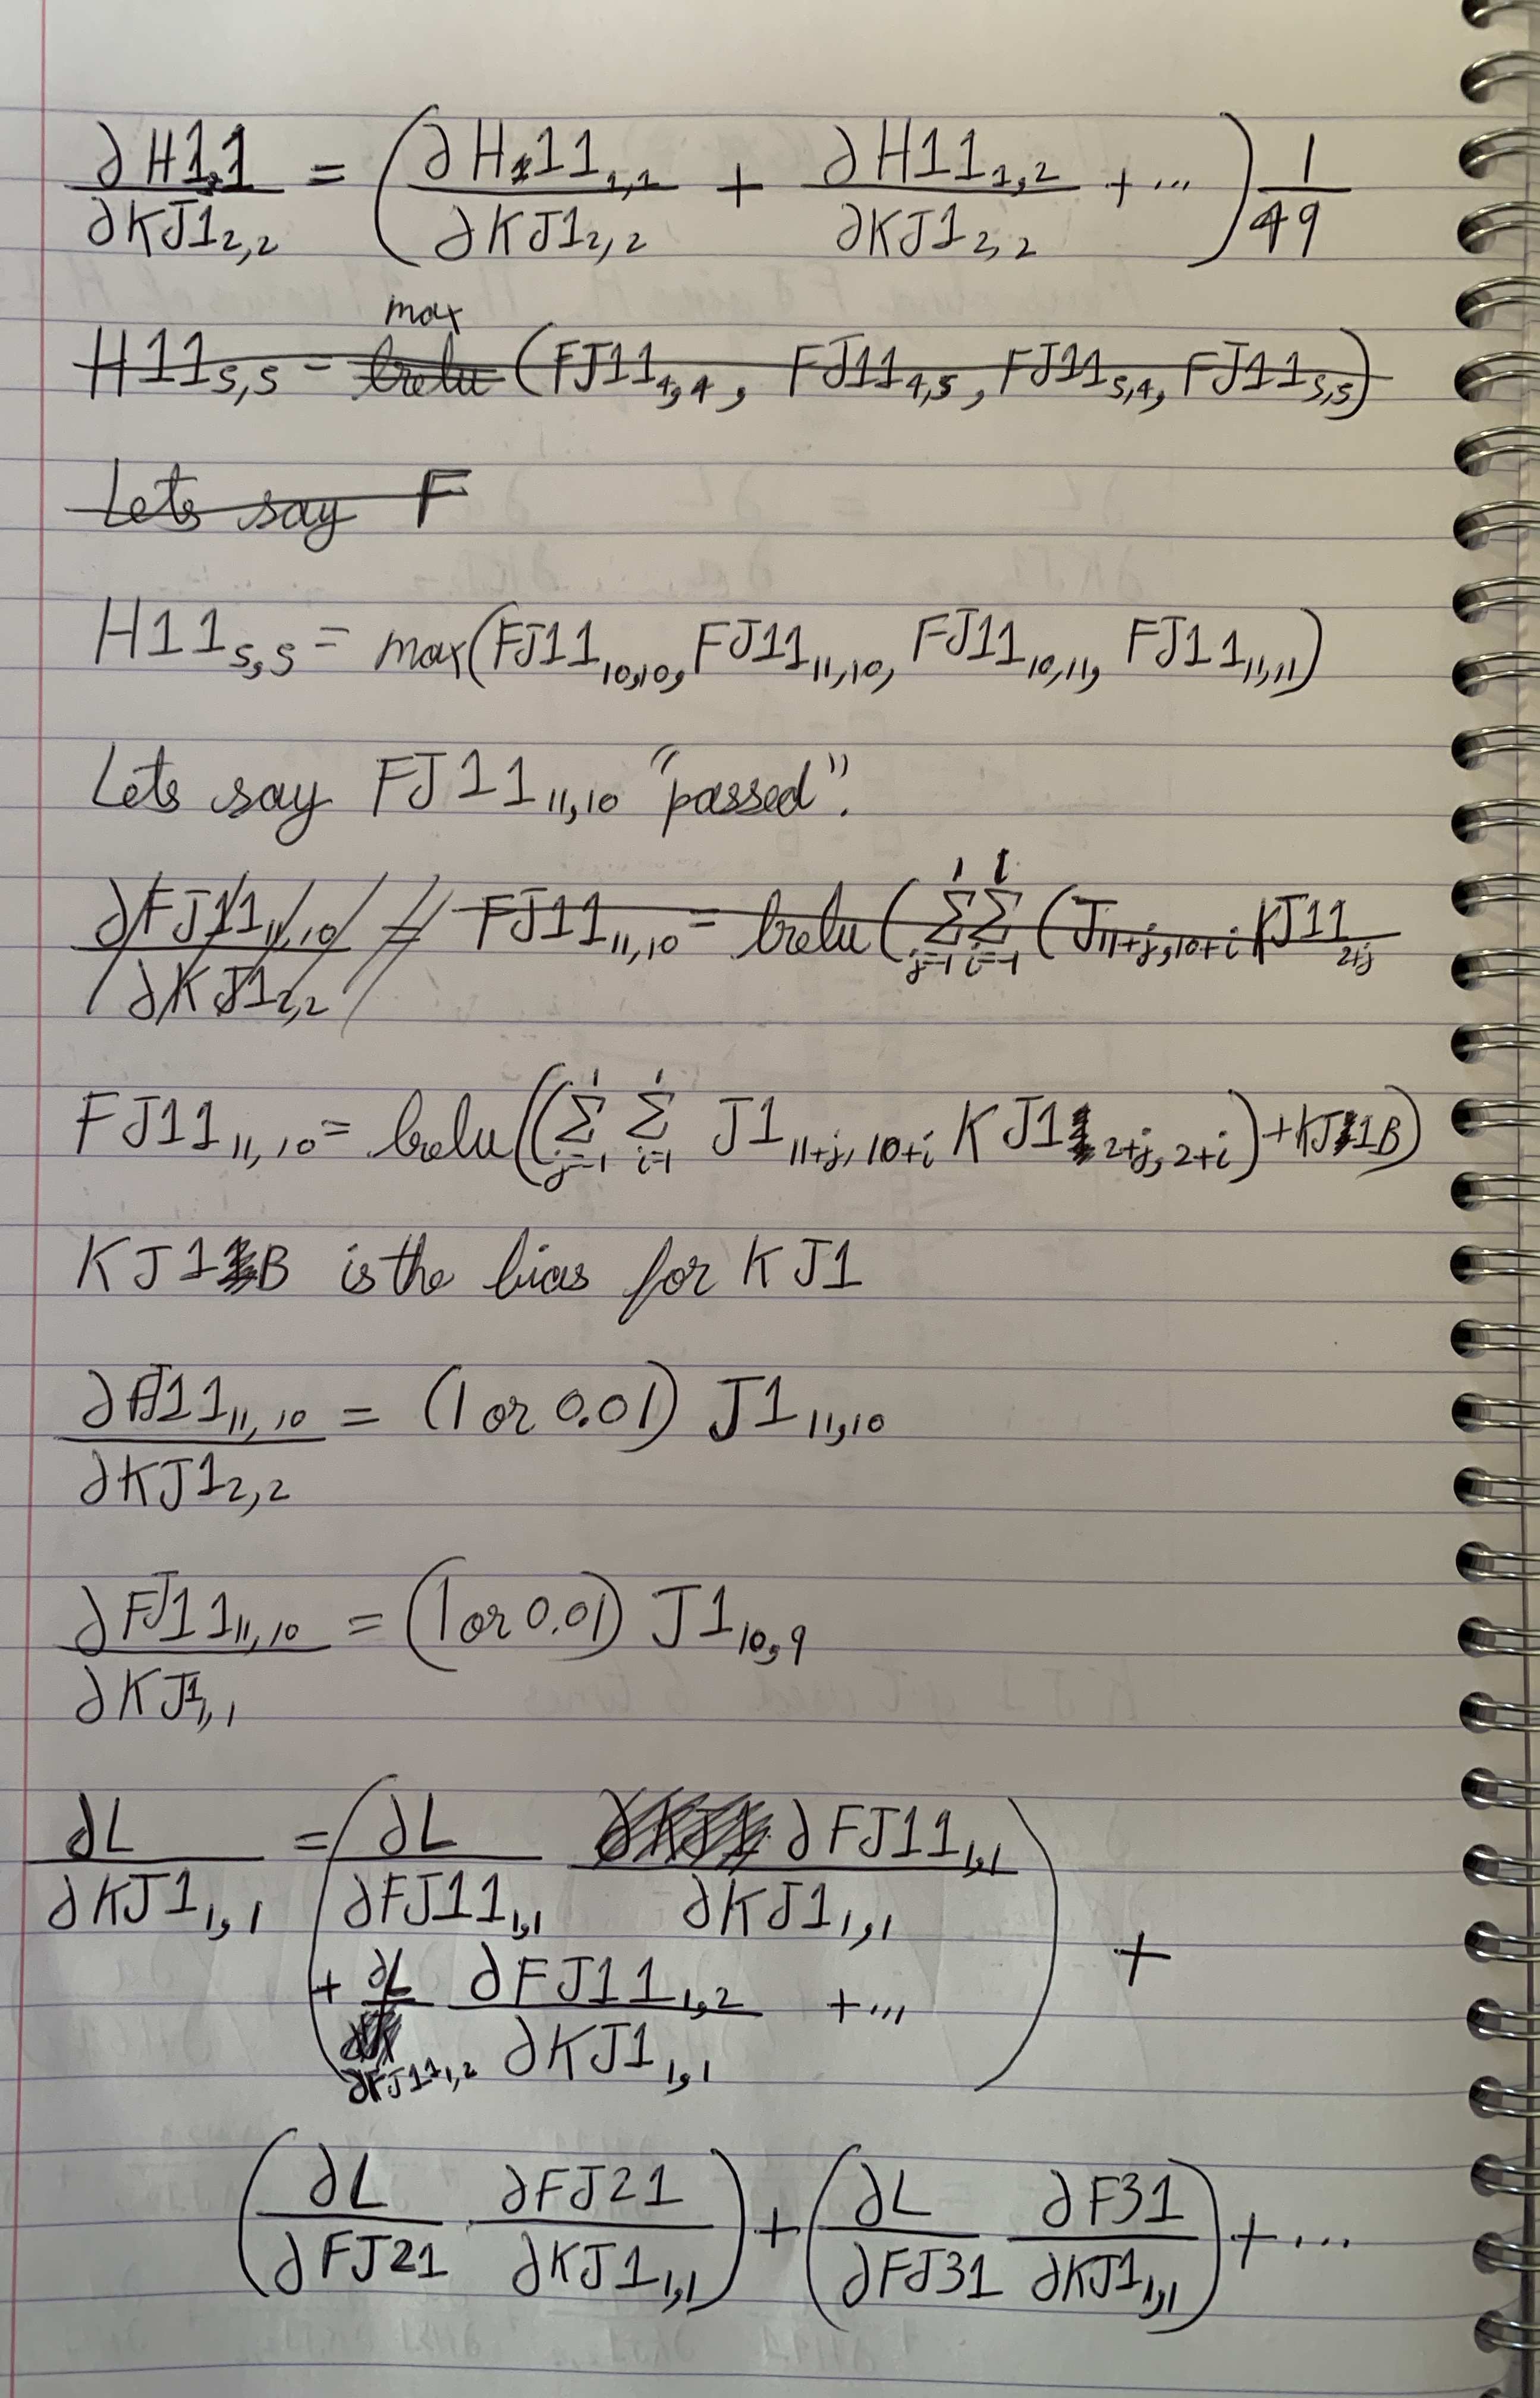 ∂H11/∂KJ1₂,₂ = (∂H11₁,₁/∂KJ1₂,₂ + ∂H11₁,₂/∂KJ1₂,₂ + ...) 1/49
max
H11₅,₅ = lrelu (FJ11₄,₄, FJ11₄,₅, FJ11₅,₄, FJ11₅,₅)
Lets say F
H11₅,₅ = max(FJ11₁₀,₁₀, FJ11₁₁,₁₀, FJ11₁₀,₁₁, FJ11₁₁,₁₁)
Lets say FJ11₁₁,₁₀ "passed".
∂FJ11₁₁,₁₀/∂KJ1₂,₂ = FJ11₁₁,₁₀ = lrelu(∑_{j=-1}^{1} ∑_{i=-1}^{1} (J_{11+j,10+i} KJ11_{2+j}
FJ11₁₁,₁₀ = lrelu((∑_{j=-1}^{1} ∑_{i=-1}^{1} J1_{11+j,10+i} KJ1_{2+j,2+i}) + KJ1B)
KJ1B is the bias for KJ1
∂FJ11₁₁,₁₀/∂KJ1₂,₂ = (1 or 0.01) J1₁₁,₁₀
∂FJ11₁₁,₁₀/∂KJ1₁,₁ = (1 or 0.01) J1₁₀,₉
∂L/∂KJ1₁,₁ = (∂L/∂FJ11₁,₁ ∂FJ11₁,₁/∂KJ1₁,₁
+ ∂L/∂FJ11₁,₂ ∂FJ11₁,₂/∂KJ1₁,₁ + ...) +
(∂L/∂FJ21 ∂FJ21/∂KJ1₁,₁) + (∂L/∂FJ31 ∂F31/∂KJ1₁,₁) + ...